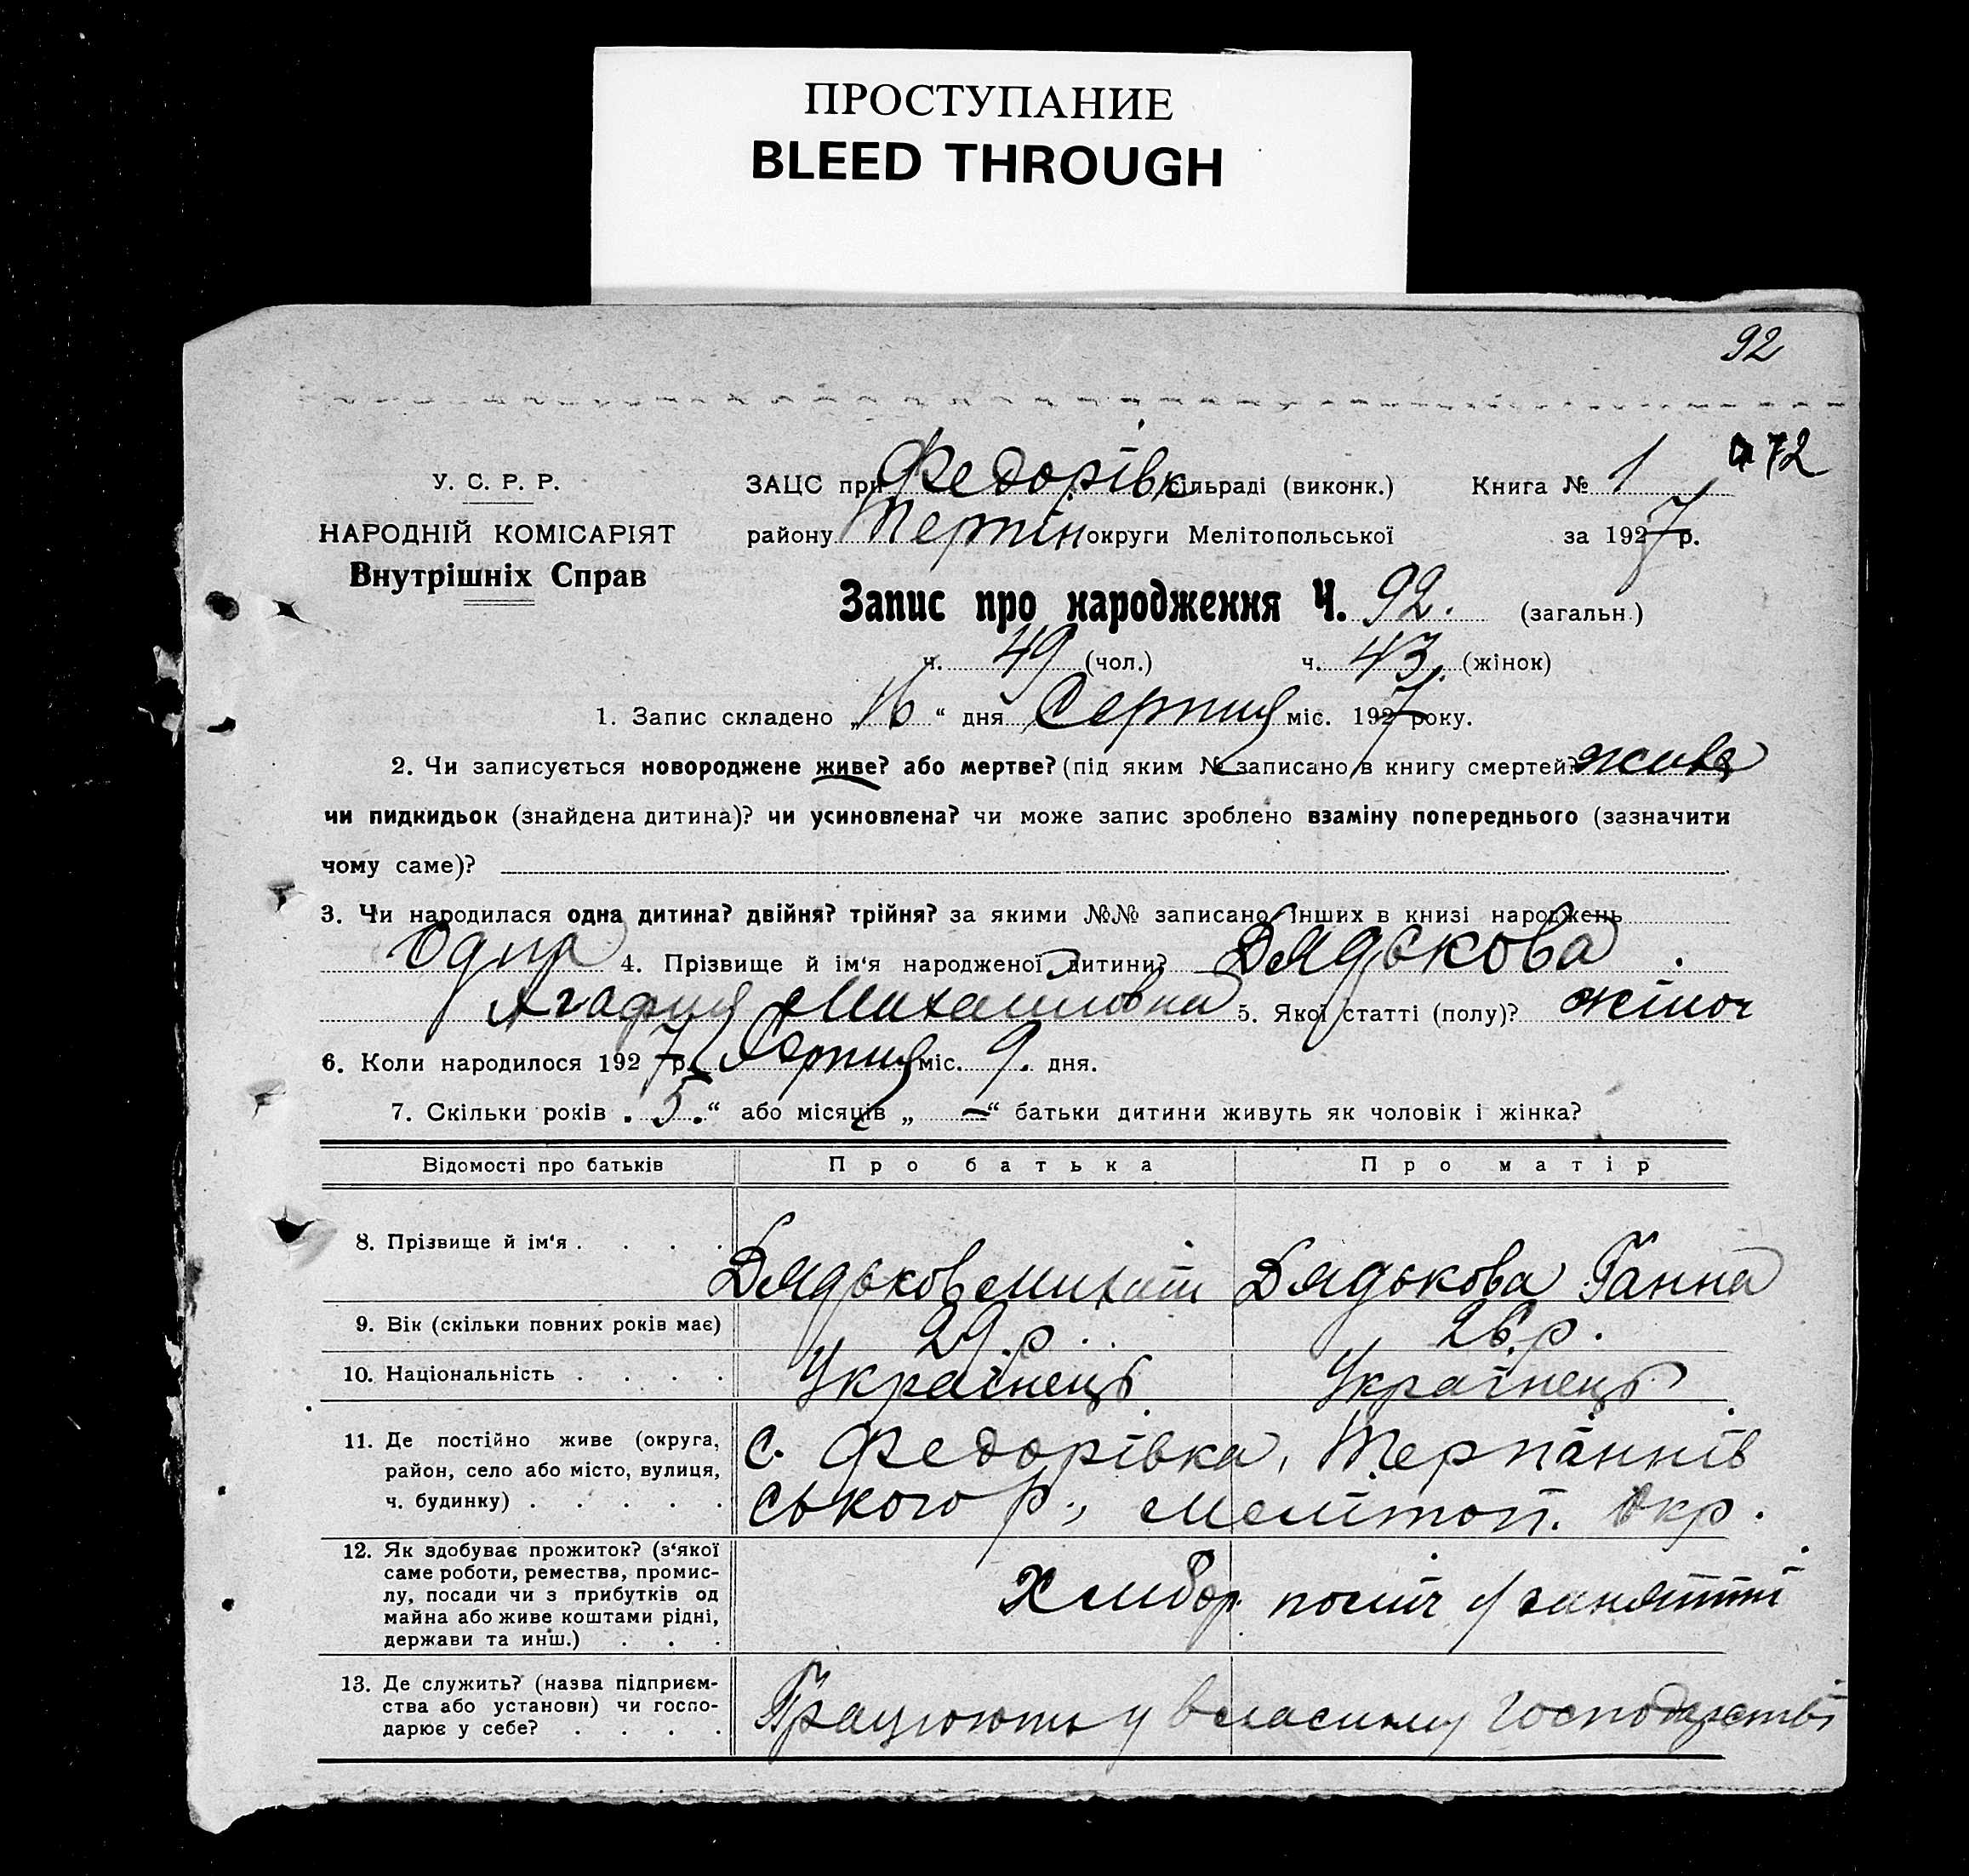 ПРОСТУПАНИЕ
BLEED THROUGH
92
72
У. С. Р. Р.
ЗАЦС при Федорівк сільраді (виконк.) Книга № 1
НАРОДНІЙ КОМІСАРІЯТ
району Терпін округи Мелітопольської за 1927 р.
Внутрішніх Справ
Запис про народження Ч. 92. (загальн.)
ч. 49 (чол.) ч. 43. (жінок)
1. Запис складено „16“ дня Серпня міс. 1927 року.
2. Чи записується новороджене живе? або мертве? (під яким № записано в книгу смертей? живе
чи пидкидьок (знайдена дитина)? чи усиновлена? чи може запис зроблено взаміну попереднього (зазначити
чому саме)?
3. Чи народилася одна дитина? двійня? трійня? за якими №№ записано інших в книзі народжень
Одна 4. Прізвище й ім‘я народженої дитини? Дядькова
Агафия Михайловна 5. Якої статті (полу)? жіноч
6. Коли народилося 1927 р. Серпня міс. 9. дня.
7. Скільки років „5.“ або місяців „—“ батьки дитини живуть як чоловік і жінка?
Відомості про батьків Про батька Про матір
8. Прізвище й ім‘я . . . . Дядьков Михайл Дядькова Ганна
9. Вік (скільки повних років має) 29 р. 26 р.
10. Національність . . . . Українець Українець
11. Де постійно живе (округа,
район, село або місто, вулиця,
ч. будинку) . . . . .
с. Федорівка, Терпаннів
ського р., Мелітоп. Окр.
12. Як здобуває прожиток? (з‘якої
саме роботи, ремества, промис-
лу, посади чи з прибутків од
майна або живе коштами рідні,
держави та инш.) . . .
Хлибор. поміч у занятті
13. Де служить? (назва підприєм-
ства або установи) чи госпо-
дарює у себе? . . . .
Працюють у власниму господарстві